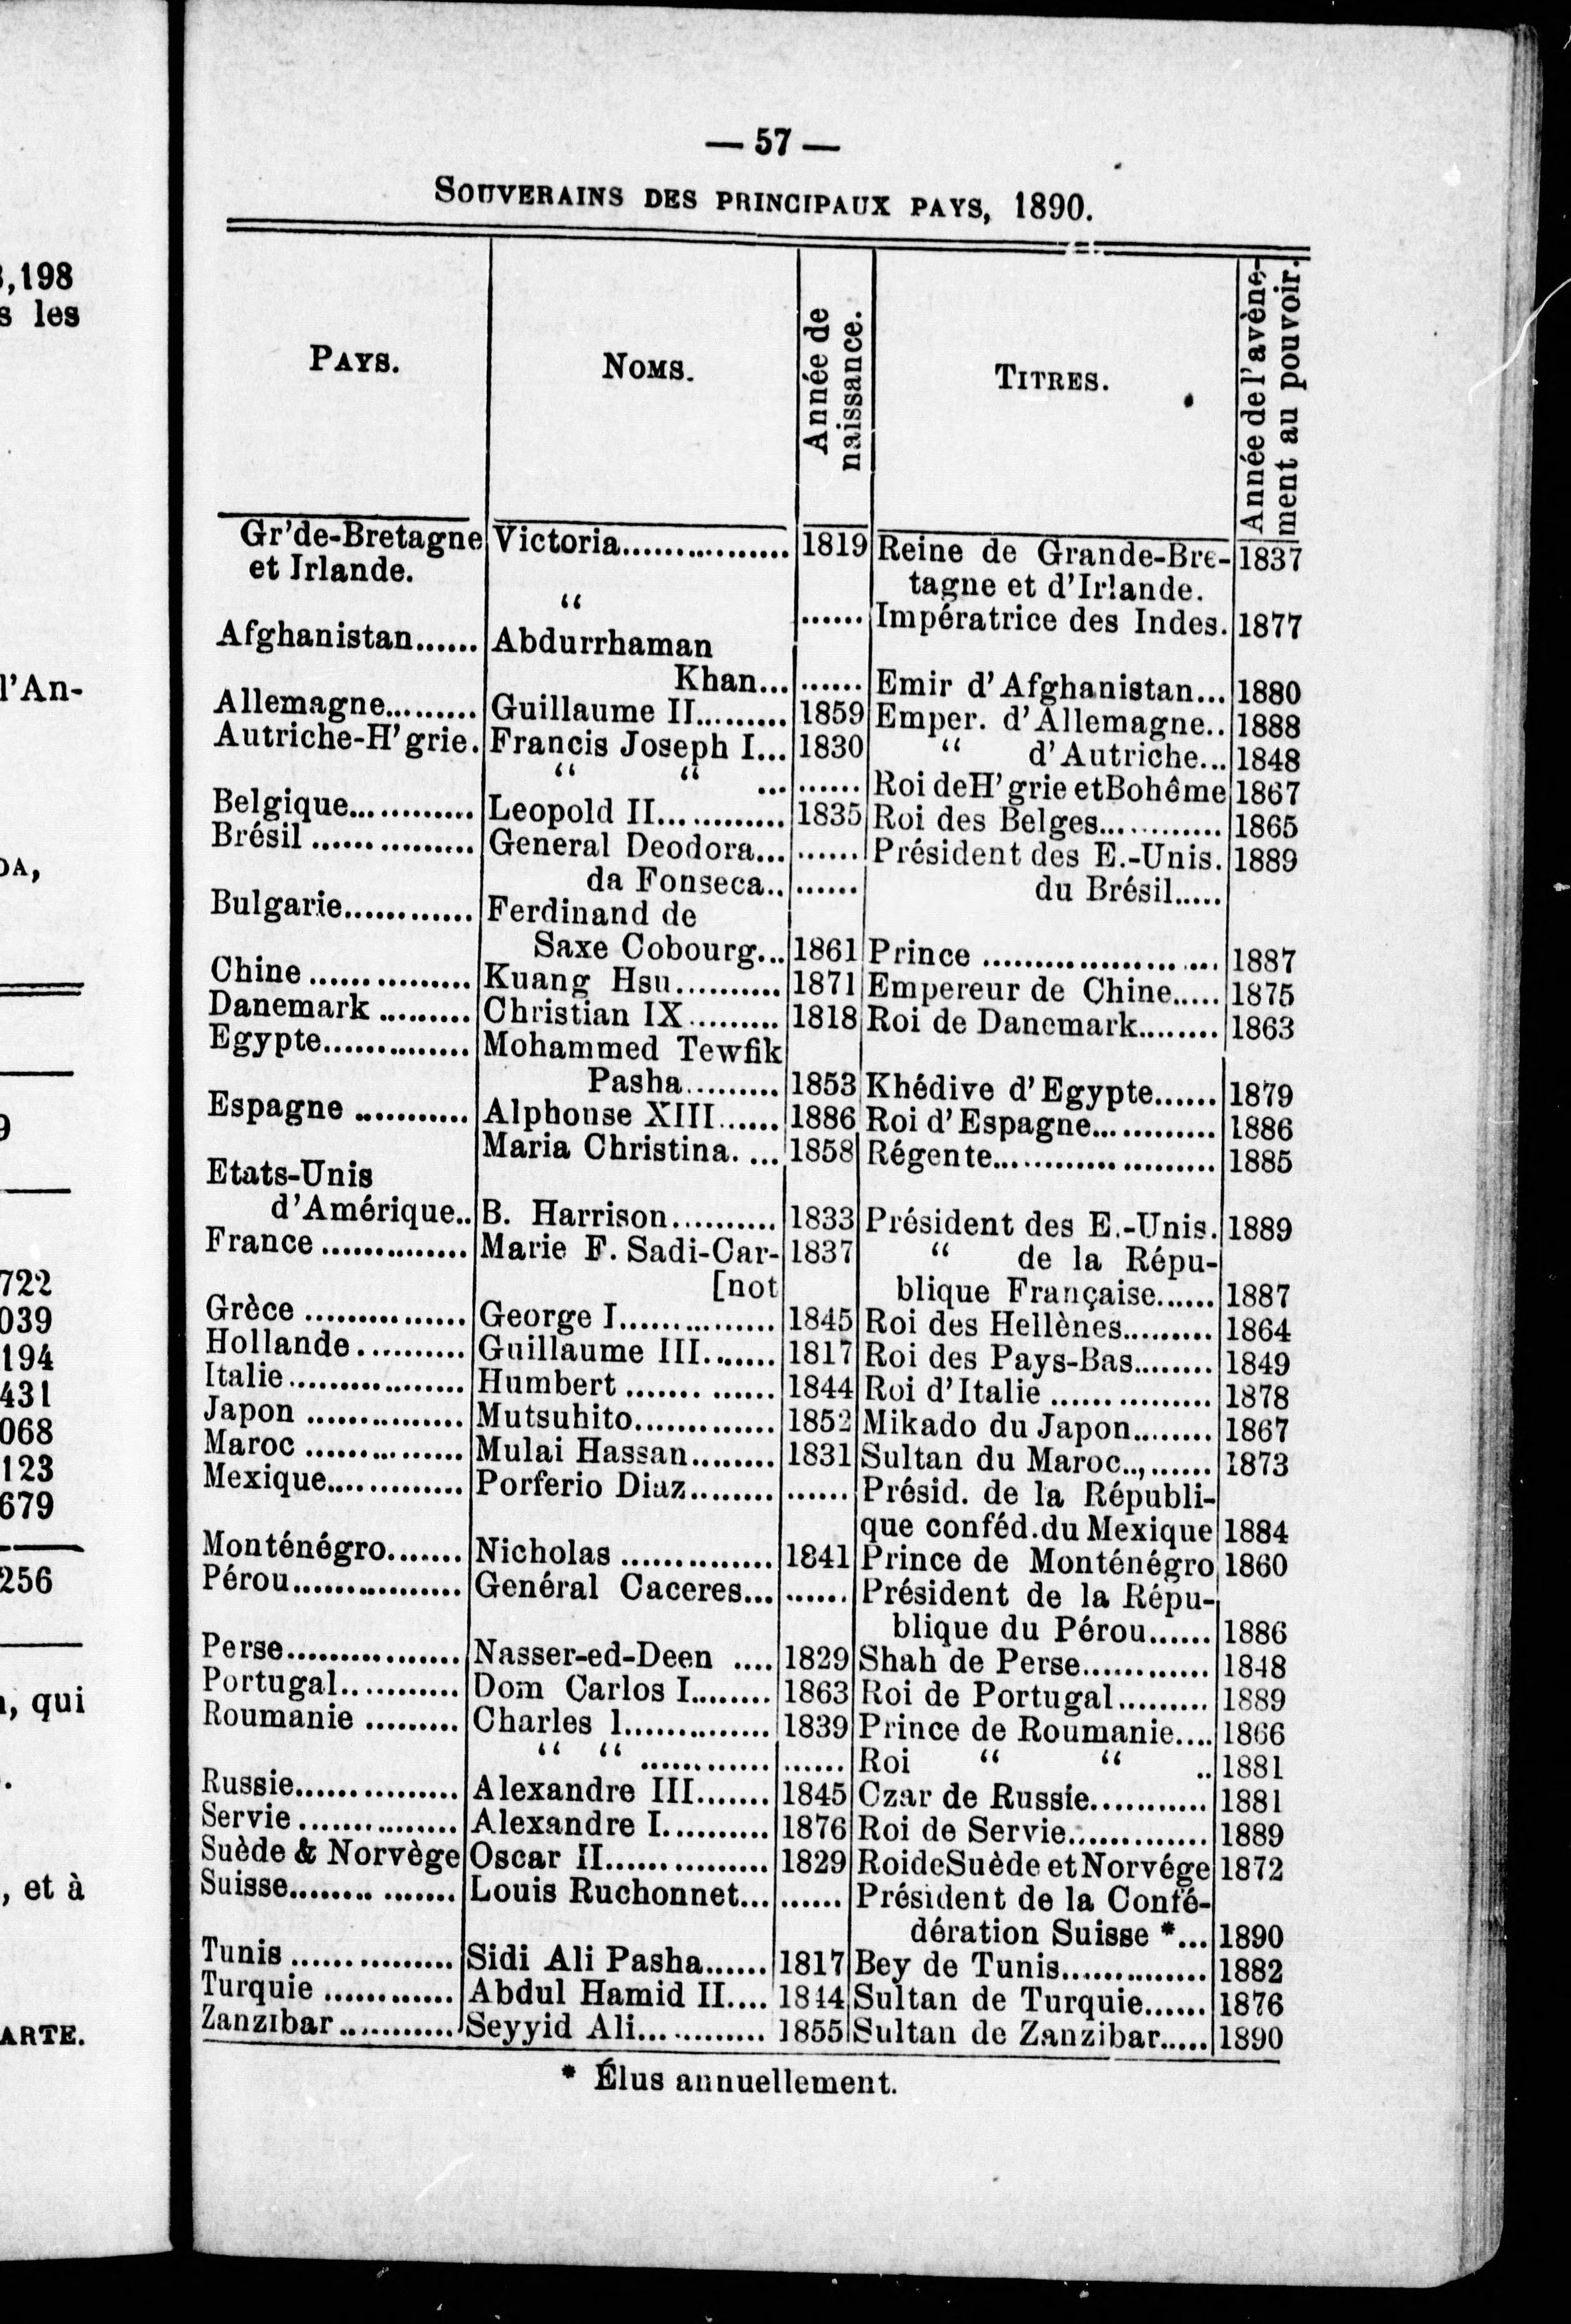 — 57 —
SOUVERAINS DES PRINCIPAUX PAYS, 1890.
PAYS. NOMS. Année de naissance. TITRES. Année de l'avène-ment au pouvoir.
Gr'de-Bretagne Victoria................ 1819 Reine de Grande-Bre- 1837
et Irlande. tagne et d'Irlande.
“ ...... Impératrice des Indes. 1877
Afghanistan...... Abdurrhaman
Khan... ...... Emir d'Afghanistan... 1880
Allemagne......... Guillaume II......... 1859 Emper. d'Allemagne.. 1888
Autriche-H'grie. Francis Joseph I... 1830 “ d'Autriche... 1848
“ “ ... ...... Roi deH'grie etBohême 1867
Belgique............ Leopold II............ 1835 Roi des Belges............ 1865
Brésil ............... General Deodora... ...... Président des E.-Unis. 1889
da Fonseca.. ...... du Brésil.....
Bulgarie............ Ferdinand de
Saxe Cobourg... 1861 Prince ...................... 1887
Chine ............... Kuang Hsu.......... 1871 Empereur de Chine..... 1875
Danemark ......... Christian IX......... 1818 Roi de Danemark........ 1863
Egypte.............. Mohammed Tewfik
Pasha.......... 1853 Khédive d'Egypte...... 1879
Espagne ........... Alphonse XIII...... 1886 Roi d'Espagne............ 1886
Maria Christina. ... 1858 Régente..................... 1885
Etats-Unis
d'Amérique.. B. Harrison.......... 1833 Président des E.-Unis. 1889
France .............. Marie F. Sadi-Car- 1837 “ de la Répu-
[not blique Française...... 1887
Grèce ............... George I............... 1845 Roi des Hellènes......... 1864
Hollande.......... Guillaume III....... 1817 Roi des Pays-Bas........ 1849
Italie................. Humbert .............. 1844 Roi d'Italie ................ 1878
Japon ............... Mutsuhito............. 1852 Mikado du Japon........ 1867
Maroc ............... Mulai Hassan........ 1831 Sultan du Maroc..,...... 1873
Mexique............. Porferio Diaz......... ...... Présid. de la Républi-
que conféd.du Mexique 1884
Monténégro....... Nicholas .............. 1841 Prince de Monténégro 1860
Pérou................ Genéral Caceres... ...... Président de la Répu-
blique du Pérou...... 1886
Perse................. Nasser-ed-Deen .... 1829 Shah de Perse............ 1848
Portugal........... Dom Carlos I........ 1863 Roi de Portugal......... 1889
Roumanie ......... Charles I.............. 1839 Prince de Roumanie.... 1866
“ “ ............ ...... Roi “ “ .. 1881
Russie................ Alexandre III....... 1845 Czar de Russie........... 1881
Servie ............... Alexandre I.......... 1876 Roi de Servie............. 1889
Suède & Norvège Oscar II................ 1829 RoideSuède etNorvége 1872
Suisse................ Louis Ruchonnet... ...... Président de la Confé-
dération Suisse *... 1890
Tunis ................ Sidi Ali Pasha...... 1817 Bey de Tunis.............. 1882
Turquie ............ Abdul Hamid II.... 1844 Sultan de Turquie...... 1876
Zanzibar ........... Seyyid Ali............ 1855 Sultan de Zanzibar..... 1890
* Élus annuellement.
,198
s les
l'An-
DA,
9
722
039
194
431
068
123
679
256
, qui
, et à
ARTE.